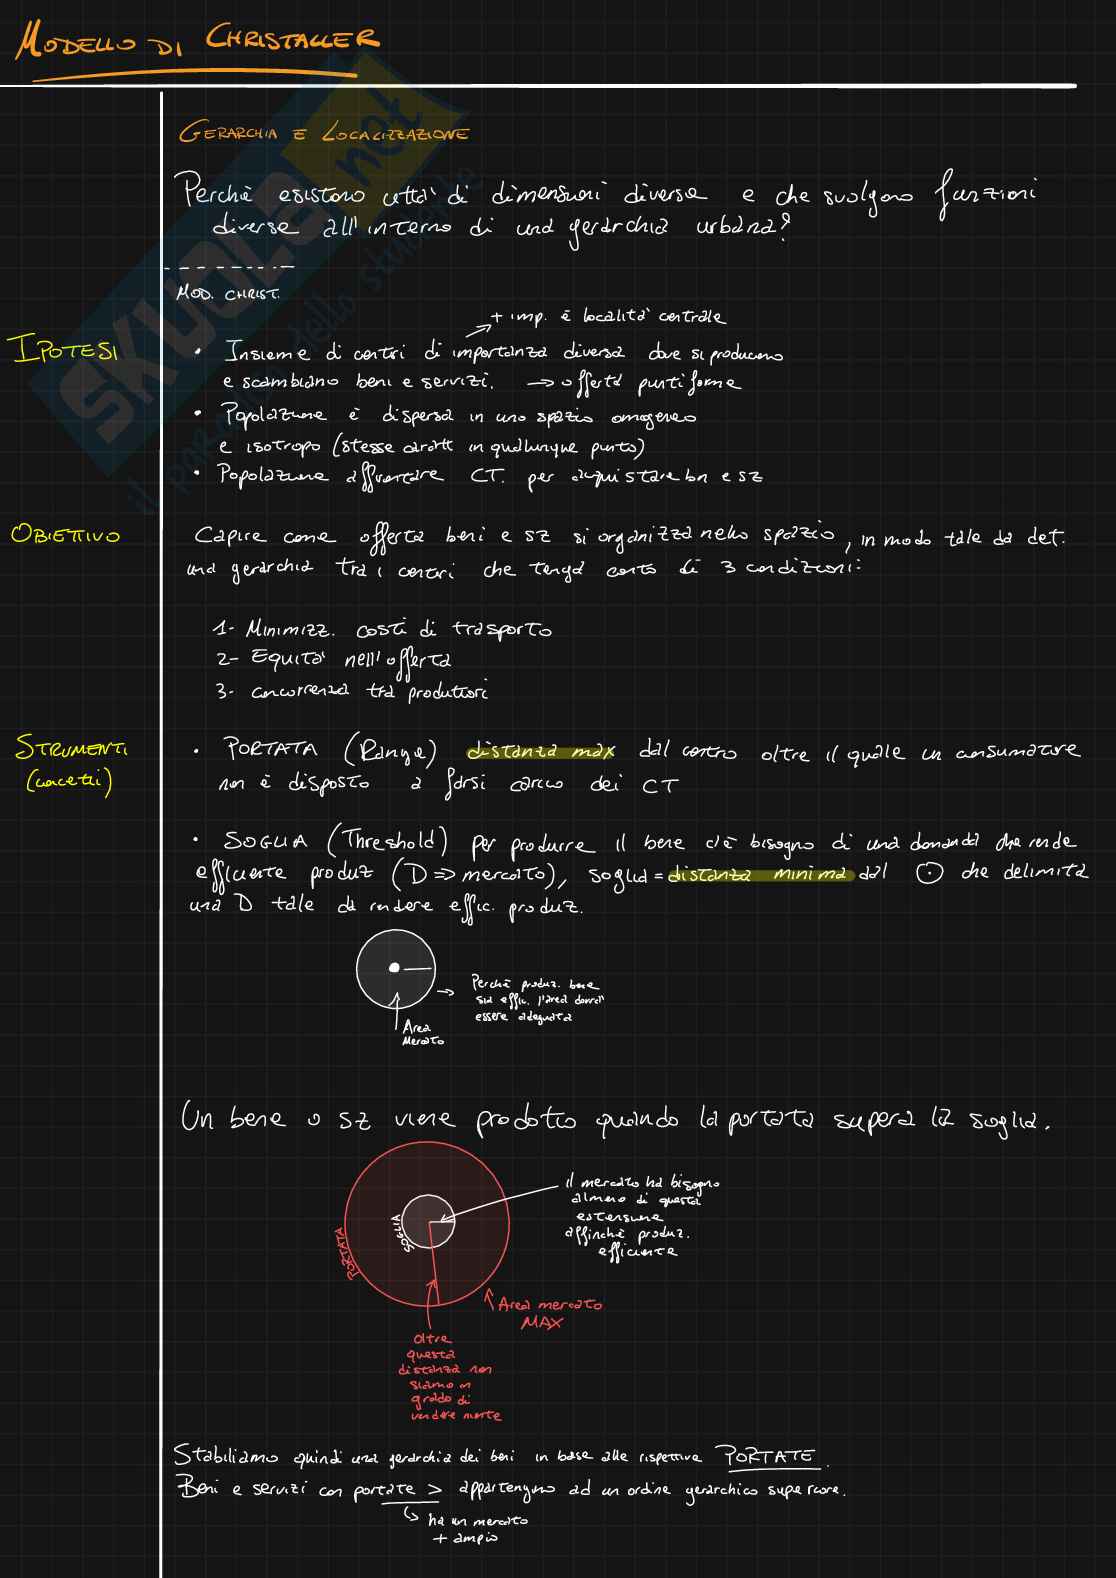 MODELLO DI CHRISTALLER
GERARCHIA E LOCALIZZAZIONE
Perchè esistono città di dimensioni diverse e che svolgono funzioni
diverse all'interno di una gerarchia urbana?
MOD. CHRIST.
+ imp. è località centrale
IPOTESI
• Insieme di centri di importanza diversa dove si producono
e scambiano beni e servizi. → offerta puntiforme
• Popolazione è dispersa in uno spazio omogeneo
e isotropo (stesse caratt in qualunque punto)
• Popolazione affrontare CT. per acquistare bn e sz
OBIETTIVO
Capire come offerta beni e sz si organizza nello spazio, in modo tale da det.
una gerarchia tra i centri che tenga conto di 3 condizioni:
1- Minimizz. costi di trasporto
2- Equità nell'offerta
3- concorrenza tra produttori
STRUMENTI
(concetti)
• PORTATA (Range) distanza max dal centro oltre il quale un consumatore
non è disposto a farsi carico dei CT
• SOGLIA (Threshold) per produrre il bene c'è bisogno di una domanda che rende
efficiente produz (D ⇒ mercato), soglia = distanza minima dal ⊙ che delimita
una D tale da rendere effic. produz.
Perchè produz. bene
sia effic. l'area dovrà
essere adeguata
Area
Mercato
Un bene o sz viene prodotto quando la portata supera la soglia.
il mercato ha bisogno
almeno di questa
estensione
affinchè produz.
efficiente
SOGLIA
PORTATA
Area mercato
MAX
oltre
questa
distanza non
siamo in
grado di
vendere niente
Stabiliamo quindi una gerarchia dei beni in base alle rispettive PORTATE.
Beni e servizi con portate > appartengono ad un ordine gerarchico superiore.
↳ ha un mercato
+ ampio
SKUOLA.net
il paradiso dello studente